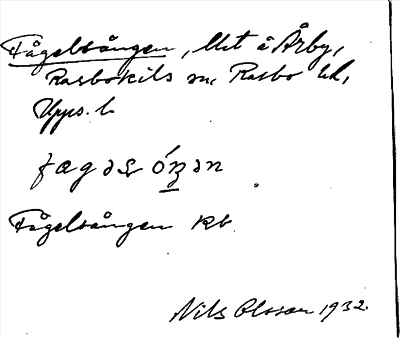 Fågelsången, lht å Årby,
Rasbokils sn, Rasbo hd,
Upps. l.
fagəl óŋən
Fågelsången kb
Nils Olsson 1932